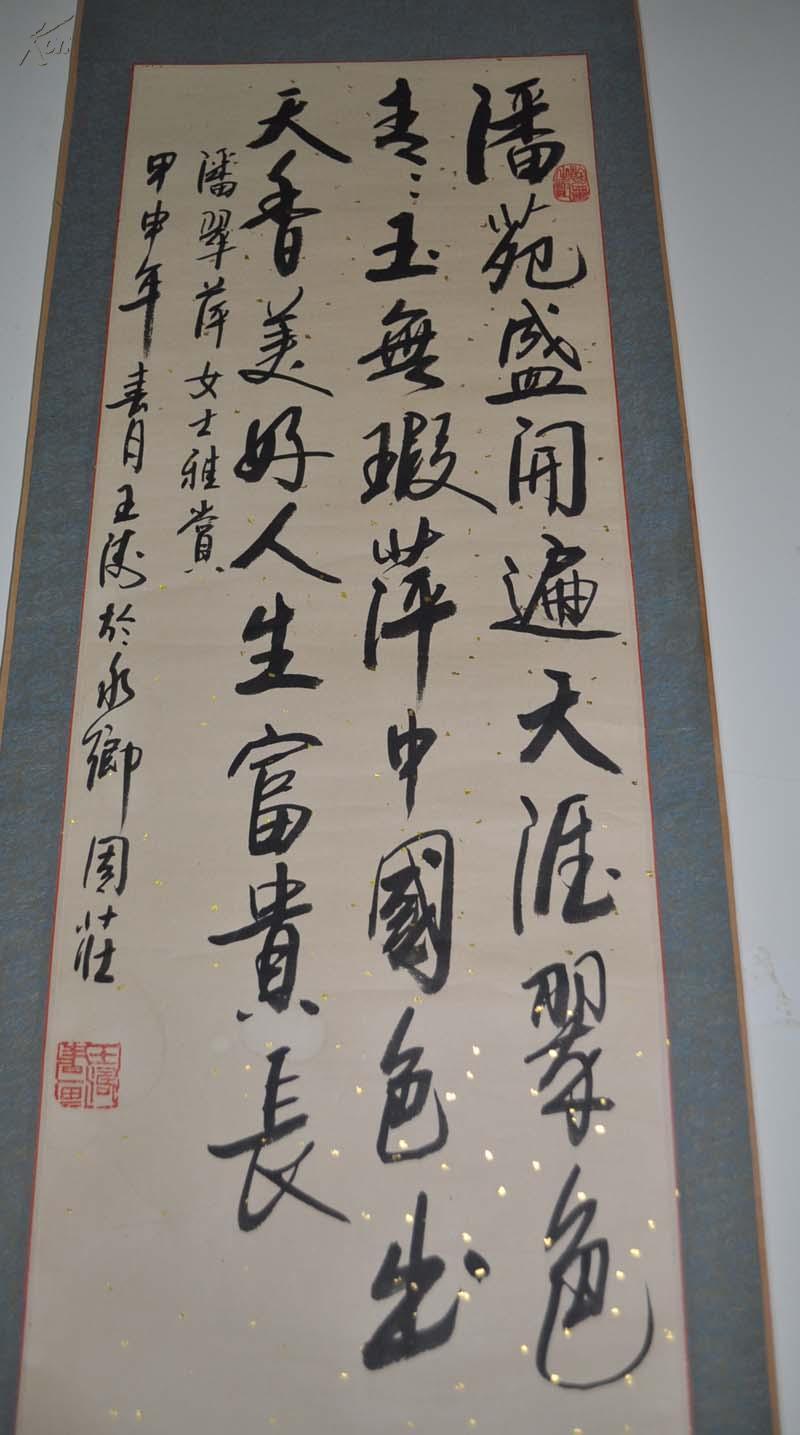 潘苑盛开遍天涯翠色
青々玉無瑕萍中國色出
天香美好人生富貴長
潘翠萍女士雅賞
甲申年春月王涛於水鄉周莊